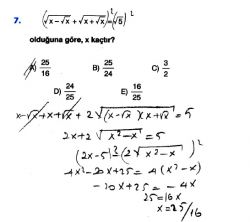 7. (√x-√x + √x+√x)² = (√5)²
olduğuna göre, x kaçtır?
A) 25/16 B) 25/24 C) 3/2
D) 24/25 E) 16/25
x-√x+x+√x + 2√(x-√x)(x+√x) = 5
2x+2√x²-x = 5
(2x-5)² = (2√x²-x)²
4x²-20x+25 = 4(x²-x)
-20x+25 = -4x
25=16x
x=25/16